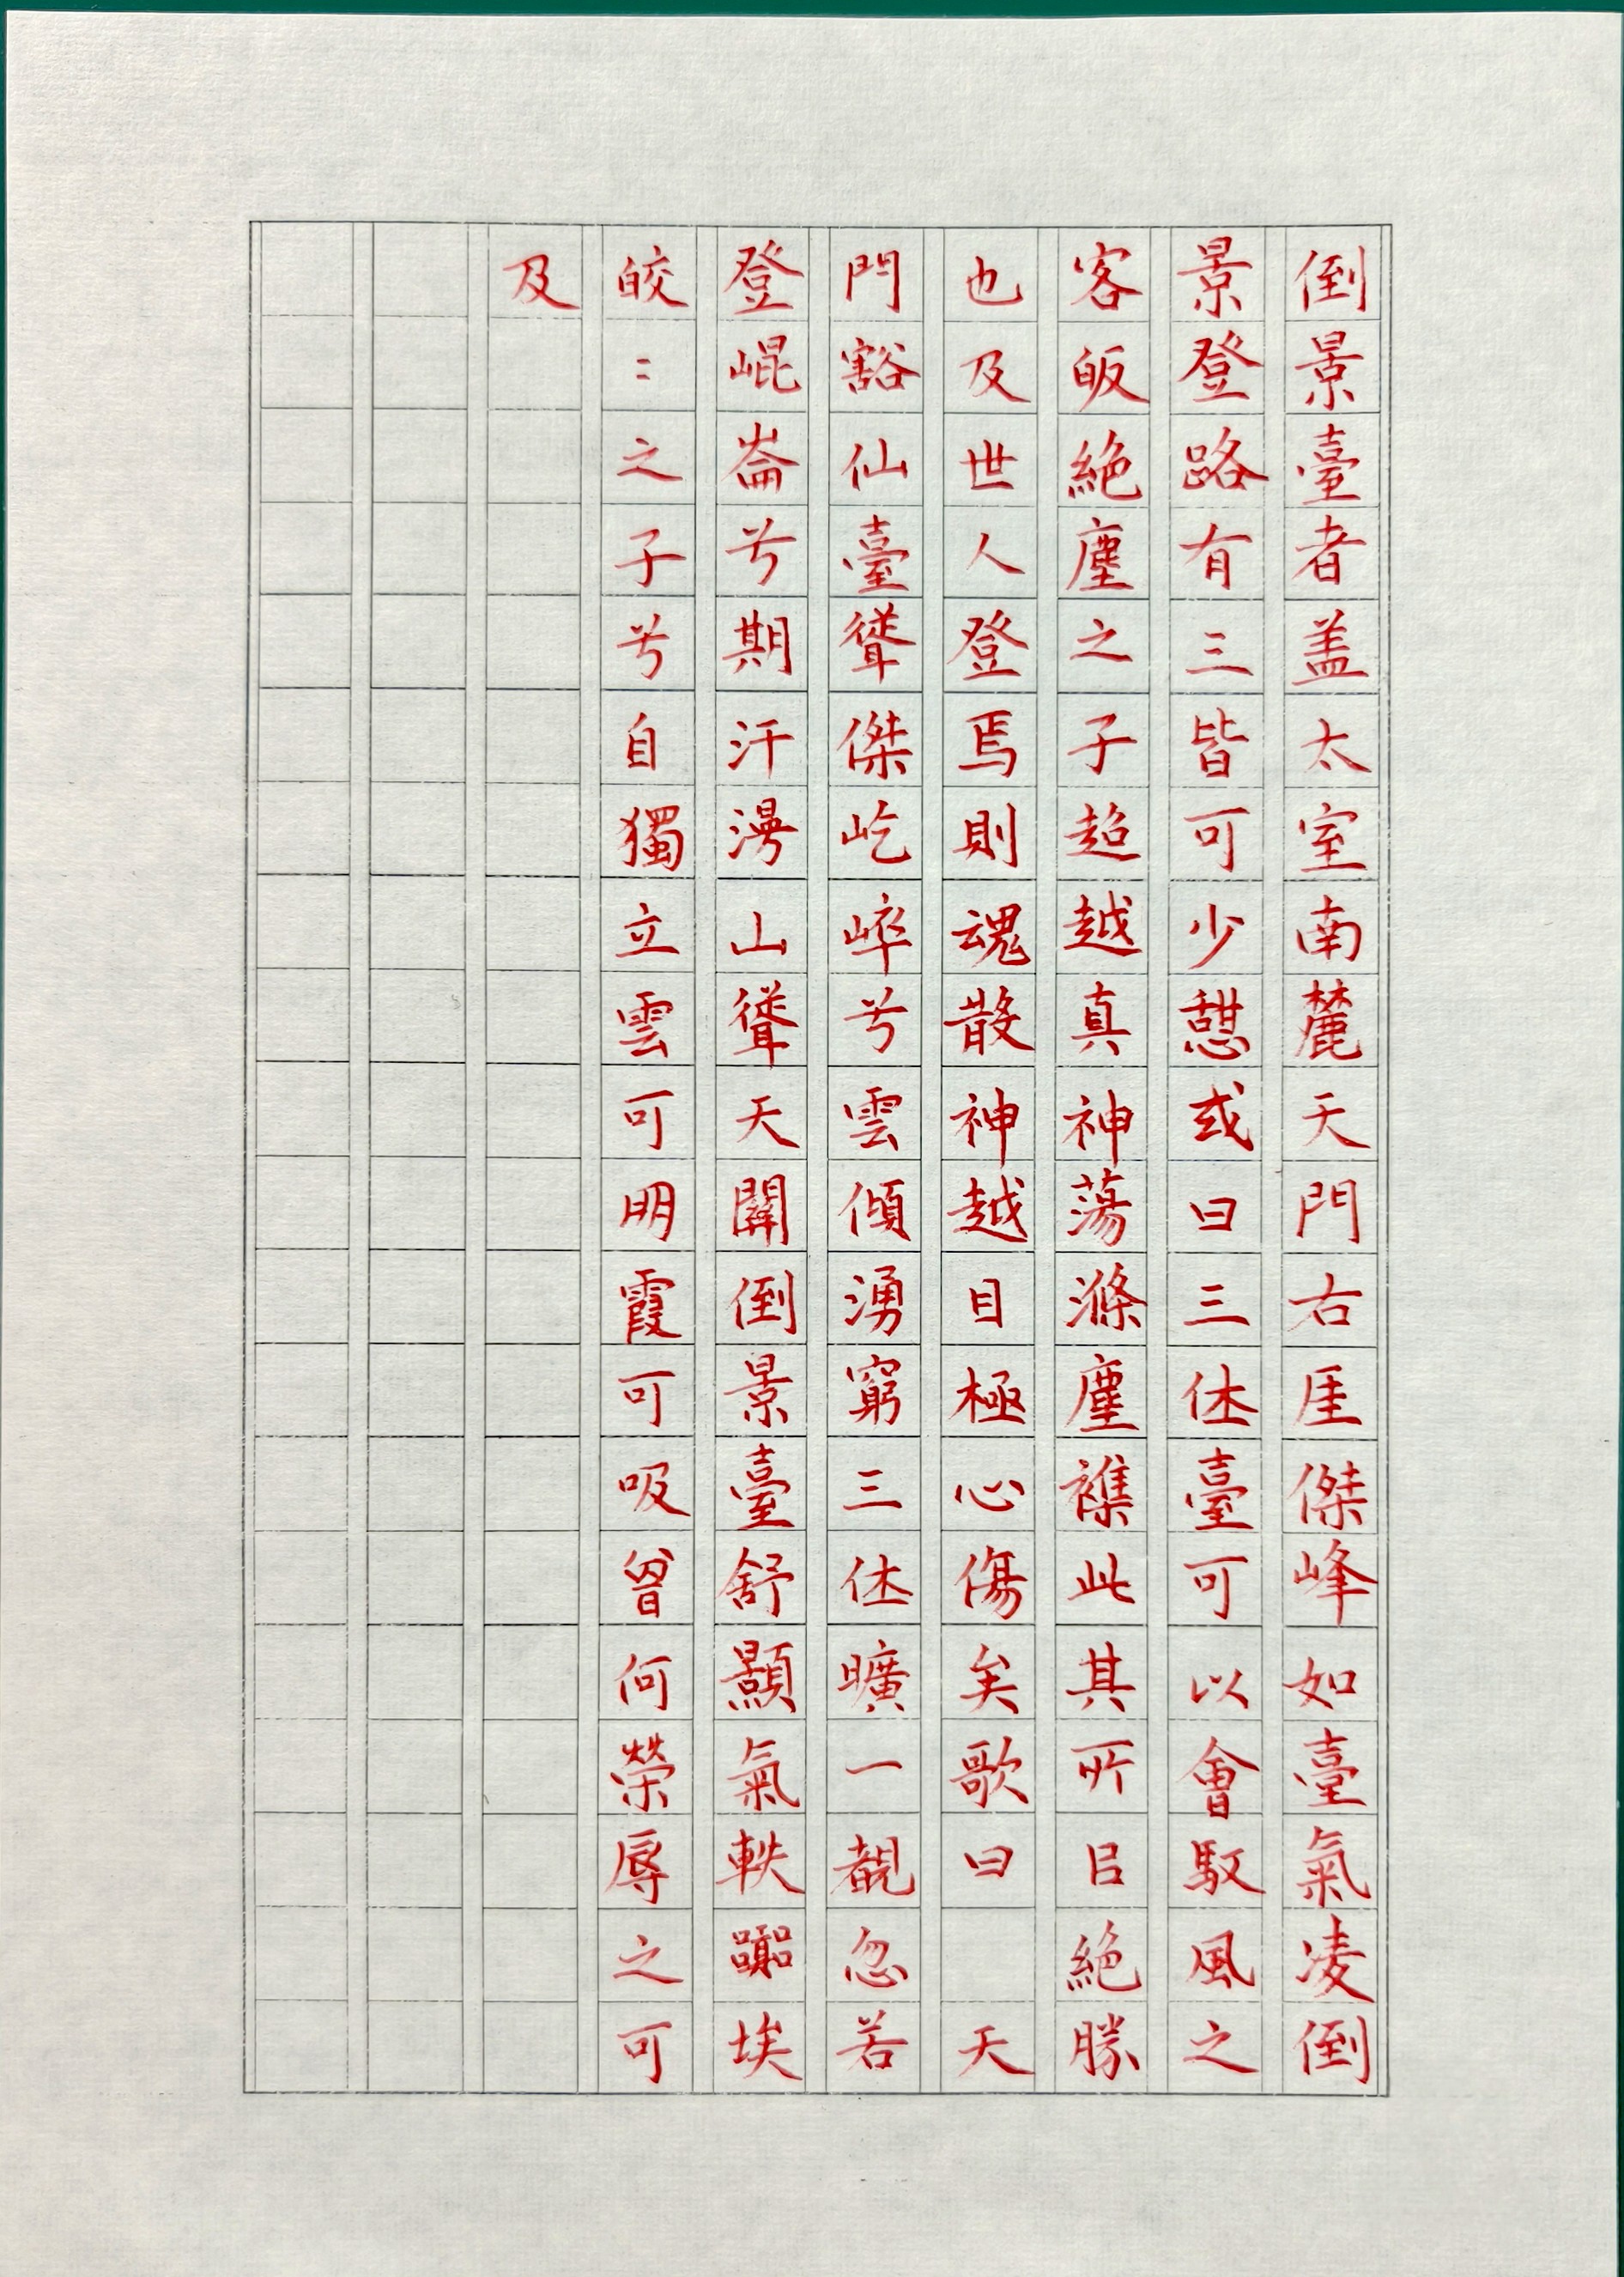 倒景臺者盖太室南麓天門右厓傑峰如臺氣凌倒
景登路有三皆可少憩或曰三休臺可以會馭風之
客皈絕塵之子超越真神蕩滌塵襟此其所㠯絕勝
也及世人登焉則魂散神越目極心傷矣歌曰　天
門豁仙臺聳傑屹崒兮雲傾湧窮三休曠一覩忽若
登崐崙兮期汗漫山聳天關倒景臺舒顥氣軼囂埃
皎〻之子兮自獨立雲可朋霞可吸曾何榮辱之可
及